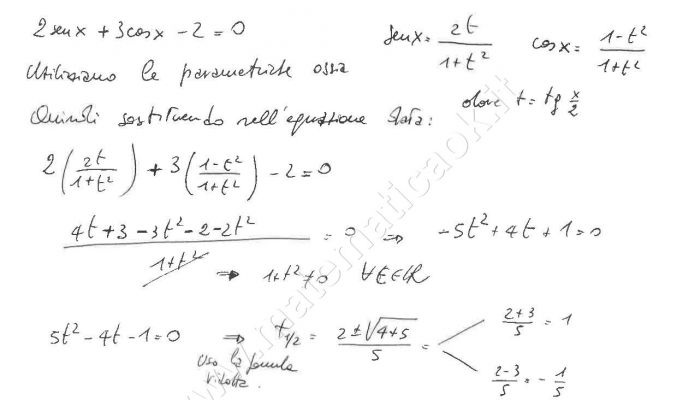 2senx + 3cosx - 2 = 0    senx = 2t/(1+t²)    cosx = (1-t²)/(1+t²)
Utilizziamo le parametriche ossia
dove t = tg x/2
Quindi sostituendo nell'equazione data:
2(2t/(1+t²)) + 3((1-t²)/(1+t²)) - 2 = 0
(4t+3-3t²-2-2t²)/(1+t²) = 0 ⇒ -5t²+4t+1=0
⇒ 1+t²≠0 ∀t∈ℝ
5t²-4t-1=0 ⇒ t1/2 = (2±√(4+5))/5 = (2+3)/5 = 1
(2-3)/5 = -1/5
Uso la formula
ridotta.
www.matematicaok.it